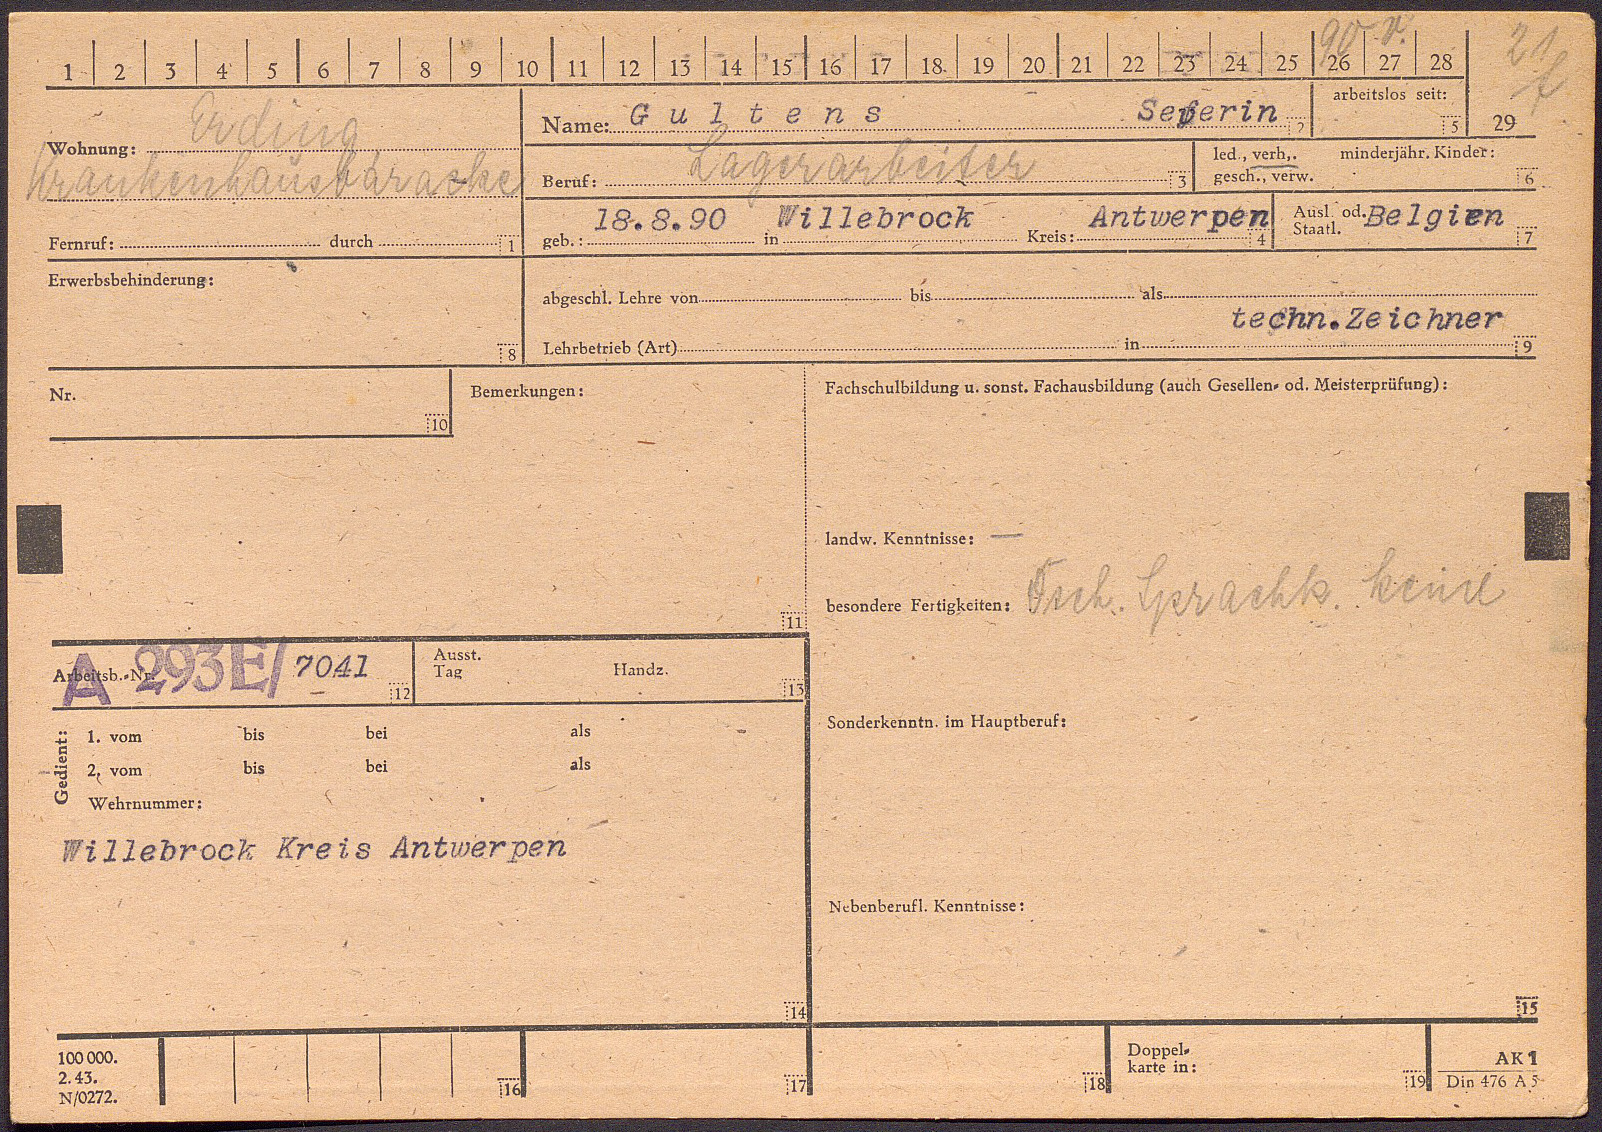 90 r.
21
1 2 3 4 5 6 7 8 9 10 11 12 13 14 15 16 17 18 19 20 21 22 23 24 25 26 27 28
29
Wohnung: Erding
Krankenhausbaracke
Fernruf: durch 1
Name: Gultens Seferin 2
arbeitslos seit: 5
Beruf: Lagerarbeiter 3
led., verh,. minderjähr. Kinder:
gesch., verw. 6
geb.: 18.8.90 in Willebrock Kreis: Antwerpen 4
Ausl. od. Belgien
Staatl. 7
Erwerbsbehinderung:
8
abgeschl. Lehre von bis als
techn.Zeichner
Lehrbetrieb (Art) in 9
Nr.
10
Bemerkungen:
11
Fachschulbildung u. sonst. Fachausbildung (auch Gesellen- od. Meisterprüfung):
landw. Kenntnisse: —
besondere Fertigkeiten: Dsch. Sprachk. keine
Arbeitsb.-Nr. A 293E/ 7041 12
Ausst.
Tag Handz. 13
Gedient:
1. vom bis bei als
2. vom bis bei als
Wehrnummer:
Willebrock Kreis Antwerpen
14
Sonderkenntn. im Hauptberuf:
Nebenberufl. Kenntnisse:
15
100 000.
2. 43.
N/0272.
16
17
18
Doppel-
karte in:
19
AK 1
Din 476 A 5